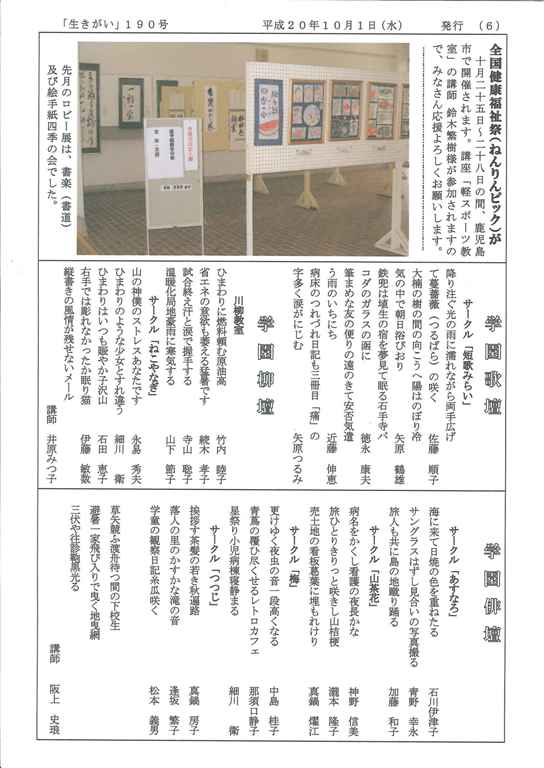 「生きがい」１９０号　平成２０年１０月１日（水）　発行　（６）
全国健康福祉祭（ねんりんピック）が
十月二十五日～二十八日の間、鹿児島
市で開催されます。講座「軽スポーツ教
室」の講師　鈴木繁樹様が参加されますの
で、みなさん応援よろしくお願いします。
先月のロビー展は、書楽（書道）
及び絵手紙四季の会でした。
学園歌壇
サークル「短歌みらい」
降り注ぐ光の雨に濡れながら両手広げ
て蔓薔薇（つるばら）の咲く　佐藤　順子
大楠の樹の間の向こうへ陽はのぼり冷
気の中で朝日浴びおり　矢原　鶴雄
鉄兜は埴生の宿を夢見て眠る石手寺バ
コダのガラスの函に　徳永　康夫
筆まめな友の便りの遠のきて安否気遣
う雨のいちにち　近藤　伸恵
病床のつれづれ日記も三冊目「痛」の
字多く涙がにじむ　矢原つるみ
学園柳壇
川柳教室
ひまわりに燃料頼む原油高　竹内　睦子
省エネの意欲も萎える猛暑です　続木　孝子
試合終え汗と涙で握手する　寺山　聡子
温暖化局地豪雨に寒気する　山下　節子
サークル「ねこやなぎ」
山の神僕のストレスあなたです　永易　秀夫
ひまわりのような少女とすれ違う　細川　衛
ひまわりはいつも賑やか子沢山　石田　恵子
右手では彫れなかったか眠り猫　伊藤　敏数
縦書きの風情が残せないメール
講師　井原みつ子
学園俳壇
サークル「あすなろ」
海に来て日焼の色を重ねたる　石川伊津子
サングラスはずし見合いの写真撮る　青野　幸永
旅人も共に島の地蹴り踊る　加藤　和子
サークル「山茶花」
病名をかくし看護の夜長かな　神野　信美
旅ひとりきりっと咲きし山桔梗　瀧本　隆子
売土地の看板葛葉に埋もれけり　真鍋　燿江
サークル「梅」
更けゆく夜虫の音一段高くなる　中島　桂子
青蔦の覆ひ尽くせるレトロカフェ　那須口静子
星祭り小児病棟寝静まる　細川　衛
サークル「つつじ」
挨拶す茶髪の若き秋遍路　真鍋　房子
落人の里のかすかな滝の音　逢坂　繁子
学童の観察日記糸瓜咲く　松本　義男
草矢競ふ渡舟待つ間の下校生
避暑一家飛び入りで曳く地曳網
三伏や往診鞄黒光る
講師　阪上　史琅